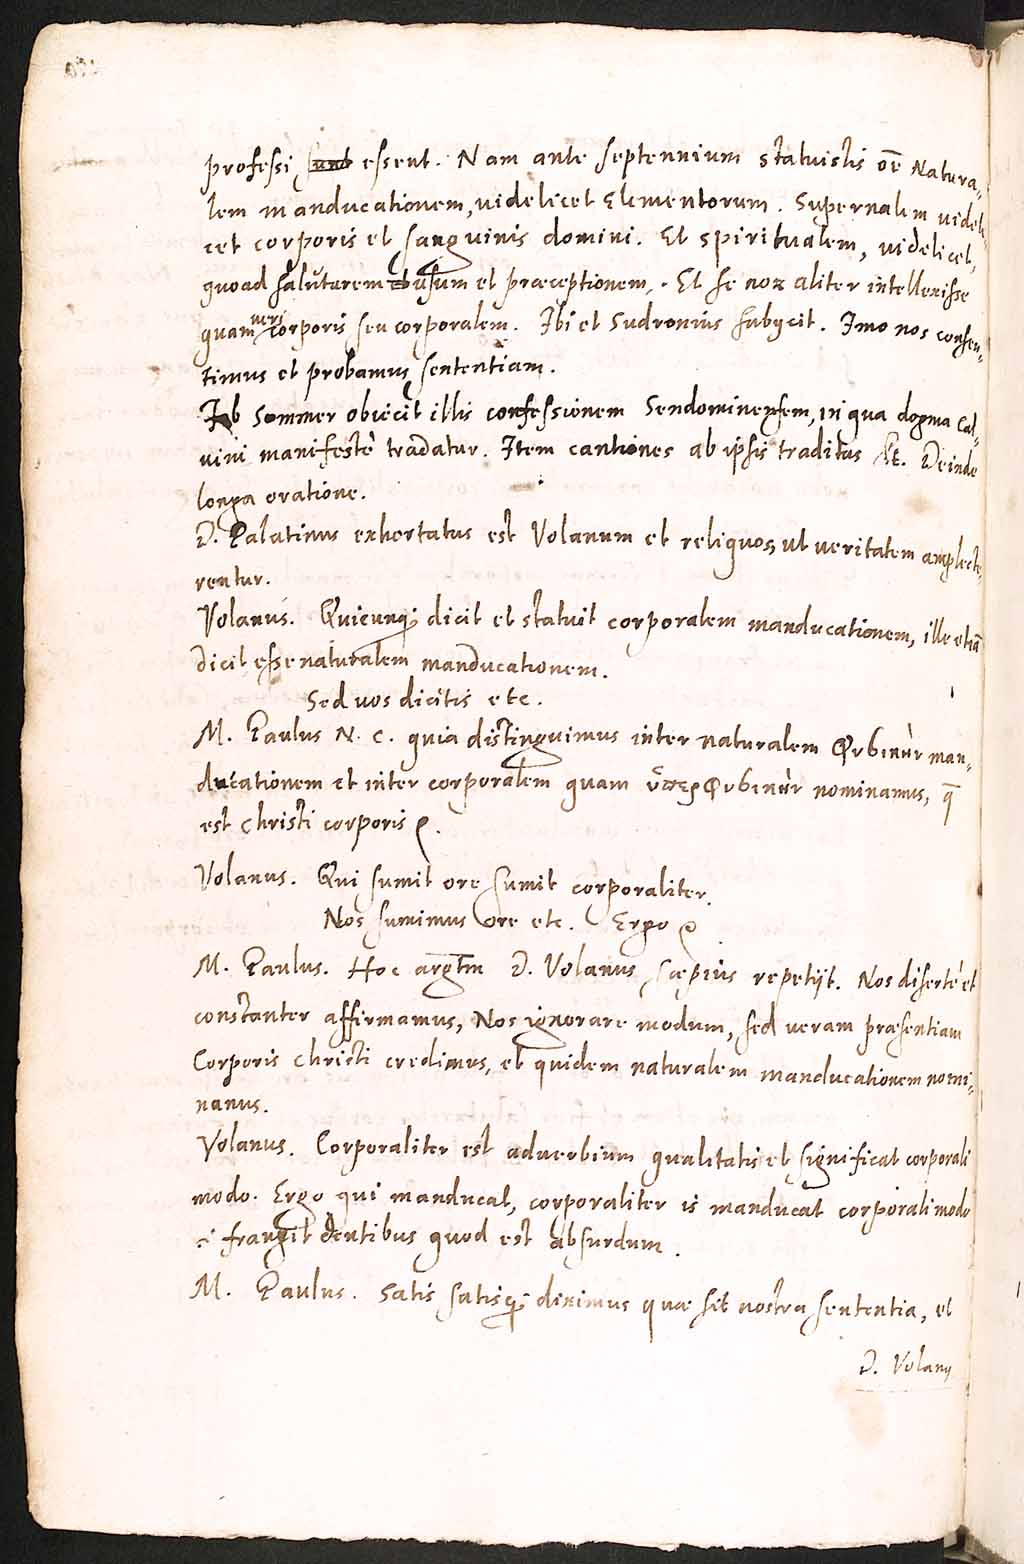 professi, sunt essent. Nam ante septennium statuistis oē Natura-
lem manducationem, videlicet Elementorum. Supernalem videli-
cet corporis et sanguinis domini. Et spiritualem, videlicet,
quoad salutarem usum et præceptionem. Et se non aliter intellexisse
quam veri corporis seu corporalem. Ibi et Sudronius subycit. Imo nos consen-
timus et probamus sententiam.
Ib Sommer obiecit illis confessionem Sendominensem, in qua dogma Cal-
vini manifestè tradatur. Item cantiones ab ipsis traditas &c. Deinde
longa oratione.
D. Palatinus exhortatus est Volanum et reliquos, ut veritatem amplecte-
rentur.
Volanus. Quicunq; dicit et statuit corporalem manducationem, ille etiā
dicit esse naturalem manducationem.
Sed vos dicitis etc.
M. Paulus N. C. quia distinguimus inter naturalem φυσικὴν man-
ducationem et inter corporalem quam ὑπερφυσικὴν nominamus, q̄
est Christi corporis &.
Volanus. Qui sumit ore sumit corporaliter.
Nos sumimus ore etc. Ergo &
M. Paulus. Hoc argtm̄ D. Volanus sæpius repetijt. Nos disertè et
constanter affirmamus, Nos ignorare modum, sed veram præsentiam
Corporis Christi credimus, et quidem naturalem manducationem nomi-
namus.
Volanus. Corporaliter est adverbium qualitatis et significat corporali
modo. Ergo qui manducat, corporaliter is manducat corporali modo
i frangit dentibus quod est absurdum.
M. Paulus. Satis satisq; diximus quæ sit nostra sententia, et
D. Volany